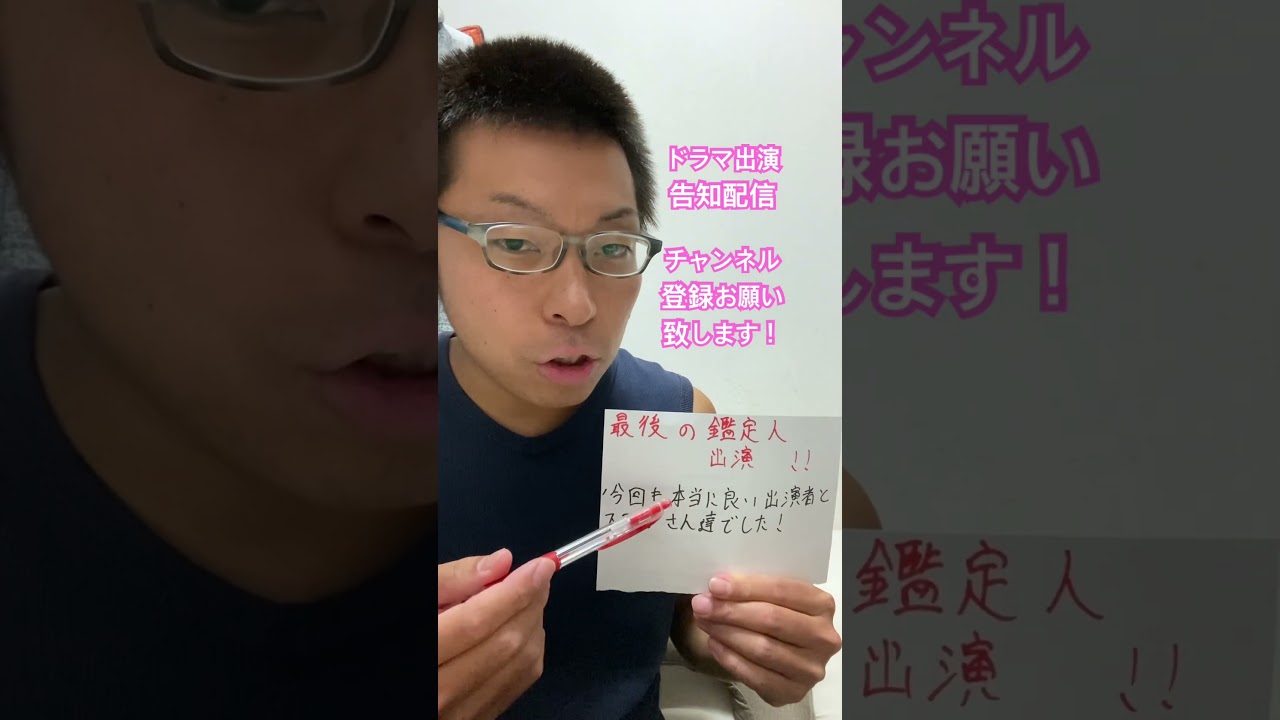 ドラマ出演
告知配信
チャンネル
登録お願い
致します！
最後の鑑定人
出演 !!
今回も本当に良い出演者と
さん達でした！
チャンネル
録お願い
します！
鑑定人
出演 !!